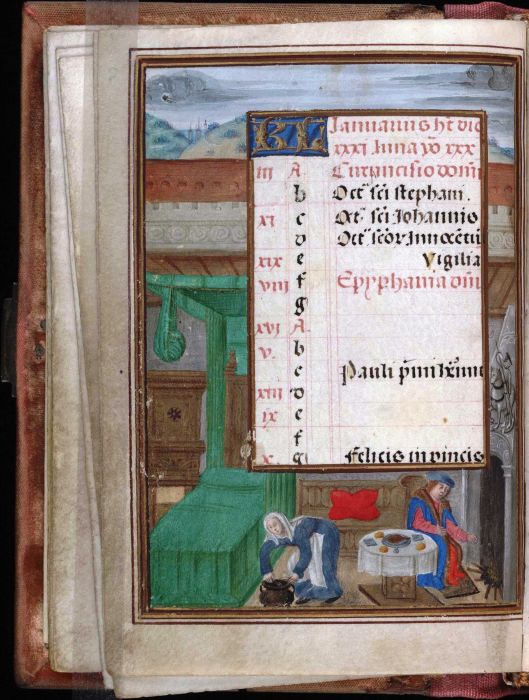 KL Januarius ht dies
xxxi luna vo xxx
iii A Circuncisio domi
b Oct sci stephani.
xi c Oct sci Johannis
d Oct scor Innocentu
xix e Vigilia
viii f Epyphania dni
g
xvi A
v. b
c Pauli primi
xiii d
ix e
f
x g Felicis in pincis